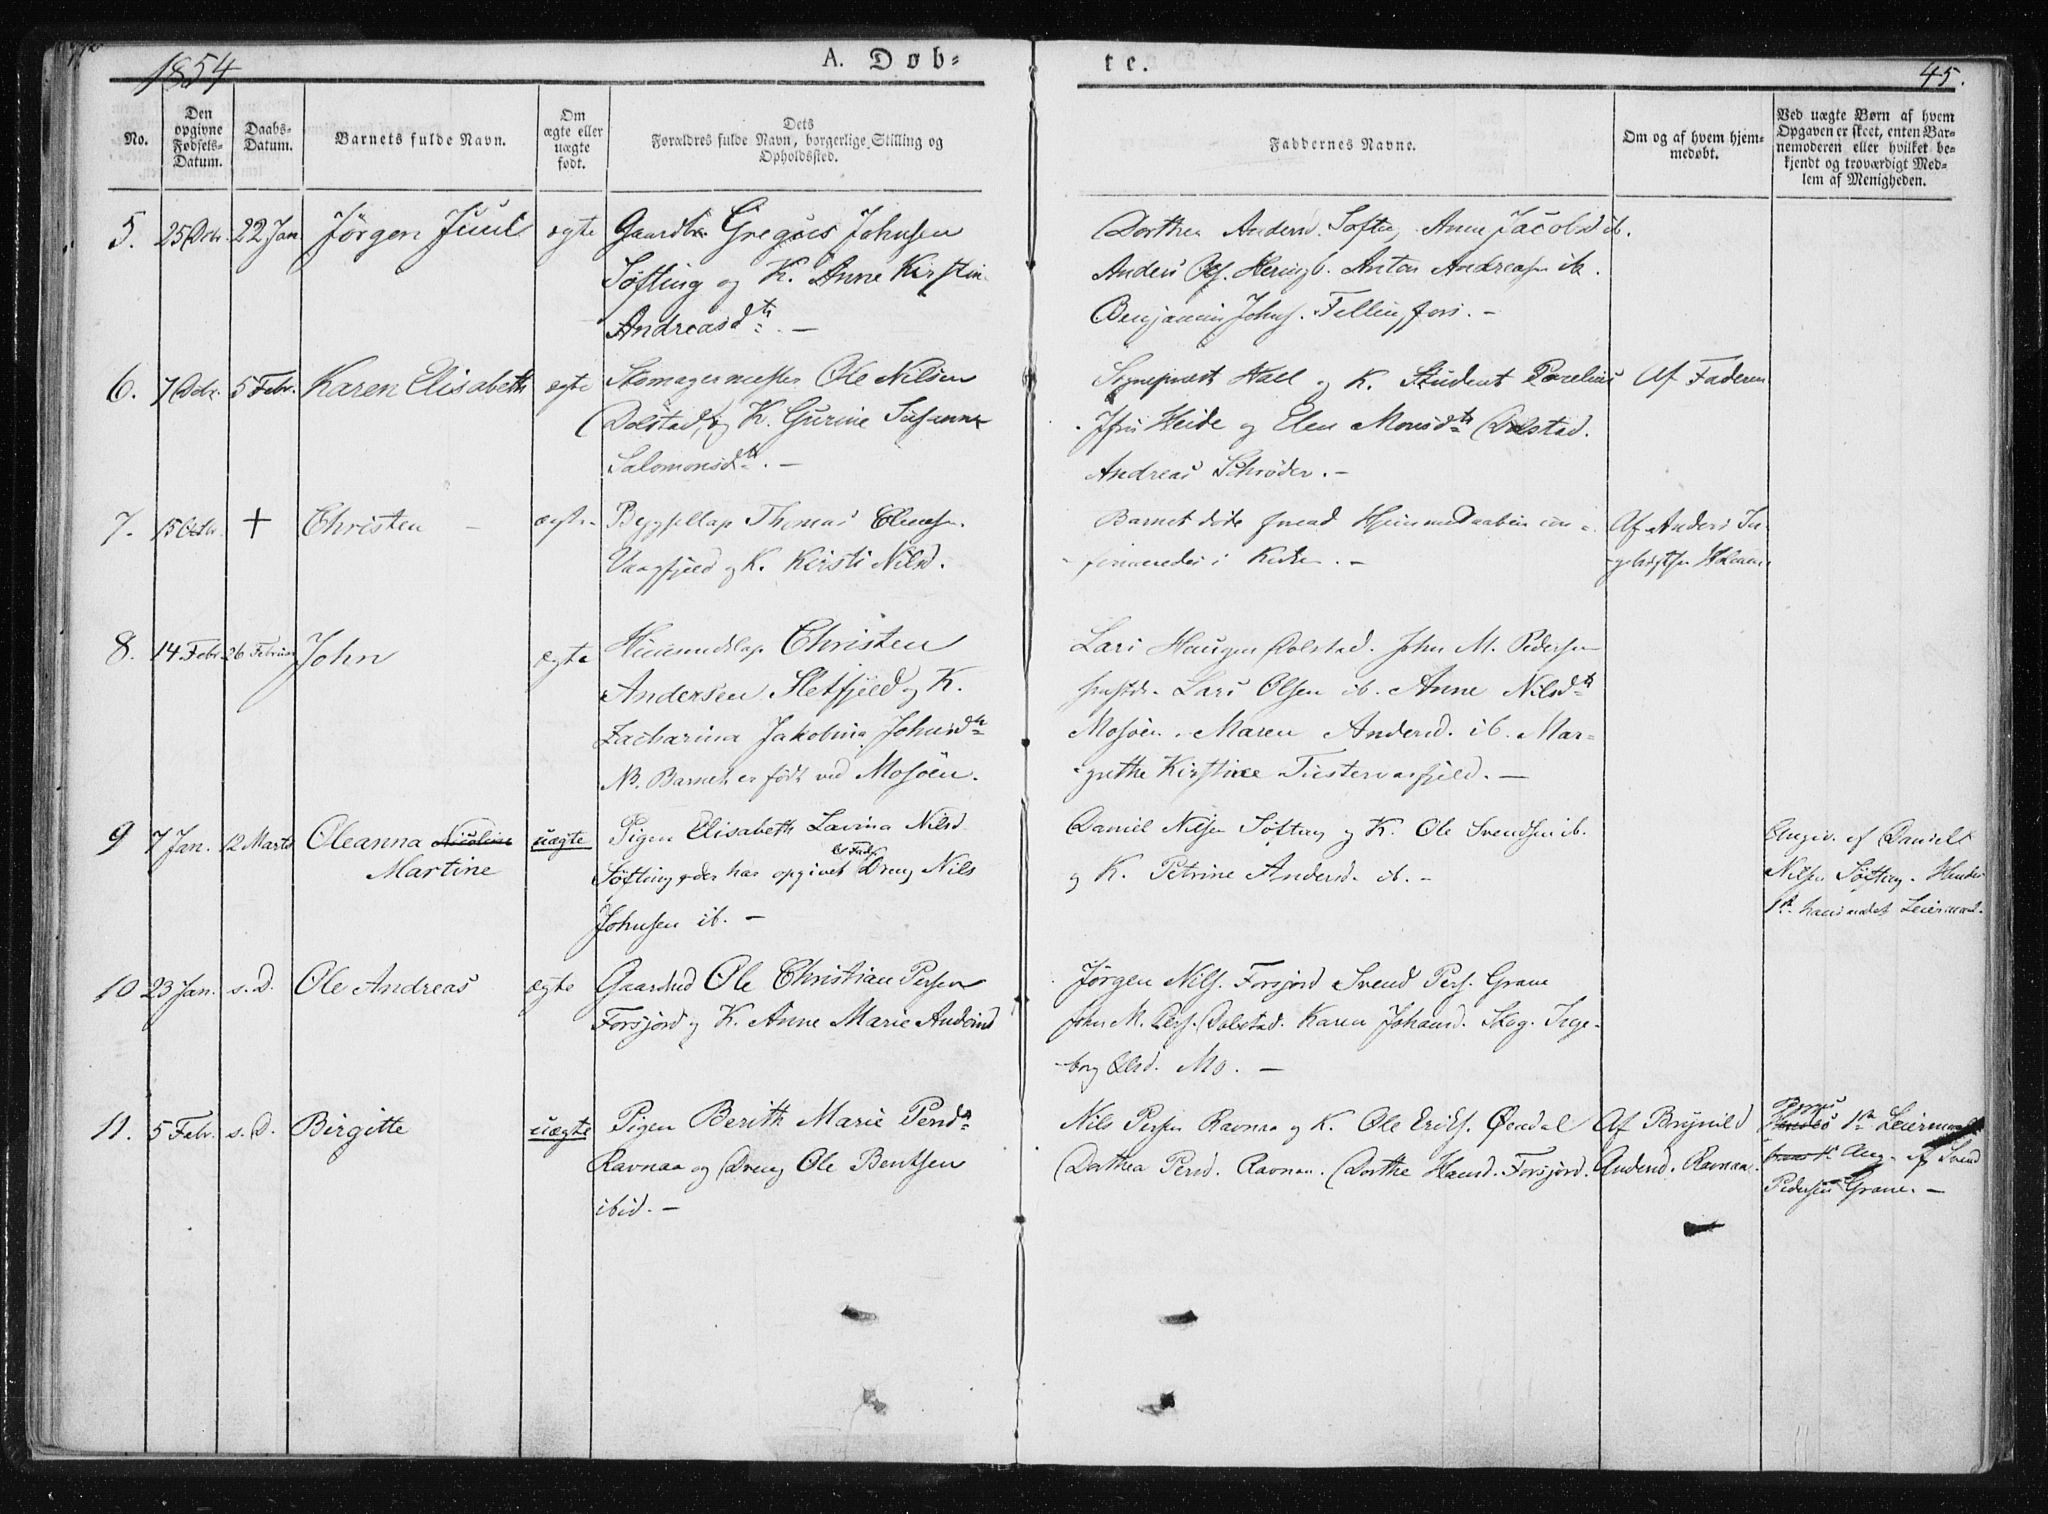 1854
A. Døb-
te.
45.
No.
Den opgivne Fødsels-Datum.
Daabs-Datum.
Barnets fulde Navn.
Om ægte eller uægte født.
Dets Forældres fulde Navn, borgerlige Stilling og Opholdssted.
Faddernes Navne.
Om og af hvem hjem-medøbt.
Ved uægte Børn af hvem Opgaven er skeet, enten Bar-nemoderen eller hvilket be-kjendt og troværdigt Med-lem af Menigheden.
5. 25 Dcbr. 22 Jan. Jørgen Juul ægte Gaardbr. Gregus Johnsen
Søfting og K. Anne Kirstin
Andreasdtr. —
Dorthea Andersd. Søftin, Anne Jacobsd ib.
Anders Ols. Heringb. Anton Andreasen ib.
Benjamin Johns. Fellingfors. —
6. 7 Dcbr. 5 Febr. Karen Elisabeth ægte Skomagermester Ole Nilsen
Dolstad, og K. Gurine Susanna
Salomonsdtr. —
Sognepræst Hall og K. Student Parelius
Jfru Heide og Elen Monsdtr Dolstad.
Andreas Schrøder. —
Af Faderen
7. 15 Octbr. + Christen — ægte Byggsellap Thomas Clemens.
Vaagfjeld og K. Kirsti Nilsd.
Barnet døde forend Hjemmedaaben con-
firmeredes i Kirken. —
Af Anders In-
gebrigtsen
8. 14 Febr. 26 Februar John ægte Christen
Andersen Sletfjeld og K.
Zacharina Jakobina Johnsdtr
NB. Barnet er født ved Mosøen.
Lars Haugen Dolstad. John M. Pedersen
Lars Olsen ib. Anne Nilsdtr
Mosøen. Maren Andersd. ib. Mar-
grethe Kirstine Tustervasfjeld. —
9 7 Jan. 12 Marts Oleanna Nicoline
Martine
uægte Pigen Elisabeth Lavina Nilsd
Søfting, der har opgivet Dreng Nils
Johnsen ib. —
Daniel Nilsen Søfting og K. Ole Svendsen ib.
og K. Petrine Andersd. ib. —
Angiv. af Daniel
Nilsen Søfting. Hendes
1ste hans andet Leiermaal.
10 23 Jan. s. D. Ole Andreas ægte Gaardmd Ole Christian Persen
Forsjord og K. Anne Marie Andersd
Jørgen Nils. Forsjord Svend Pers. Grane
John M. Pers. Dolstad. Karen Johansd. Skog. Inge-
borg Olsd. Mo. —
11. 5 Febr. s. D. Birgitte uægte Pigen Berith Marie Persdtr
Ravnaa og Dreng Ole Bentsen
ibid. —
Nils Persen Ravnaa og K. Ole Eriks. Øendal
Dorthea Persd. Ravnaa. Dorthe Hansd. Forsjord.
Af Brynild
Andersd. Ravnaa.
Begges
Hendes 1ste Leiermaal
Ang. af Svend
Pedersen Grane. —